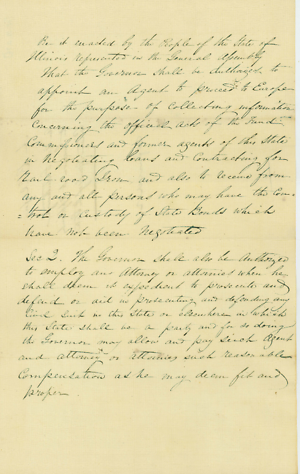 Be it enacted by the People of the State of
Illinois represented in the General Assembly
That the Governor shall be Authorized to
appoint an Agent to proceed to Europe
for the purpose of collecting information
Concerning the official acts of the Fund
Commissioners and former agents of this State
in Negotiating Loans and Contracting for
Rail road Iron and also to receive from
any and all persons who may have the Con=
=trol or Custody of State Bonds which
have not been Negotiated
Sec 2. The Governor shall also be Authorized
to employ any Attorney or attornies when he
shall deem it expedient to prosecute and
defend or aid in prosecuting and defending any
Suit in this State or elsewhere in which
this State shall be a party and for so doing
the Governor may allow and pay such Agent
and attorney or attornies such reasonable
Compensation as he may deem fit and
proper